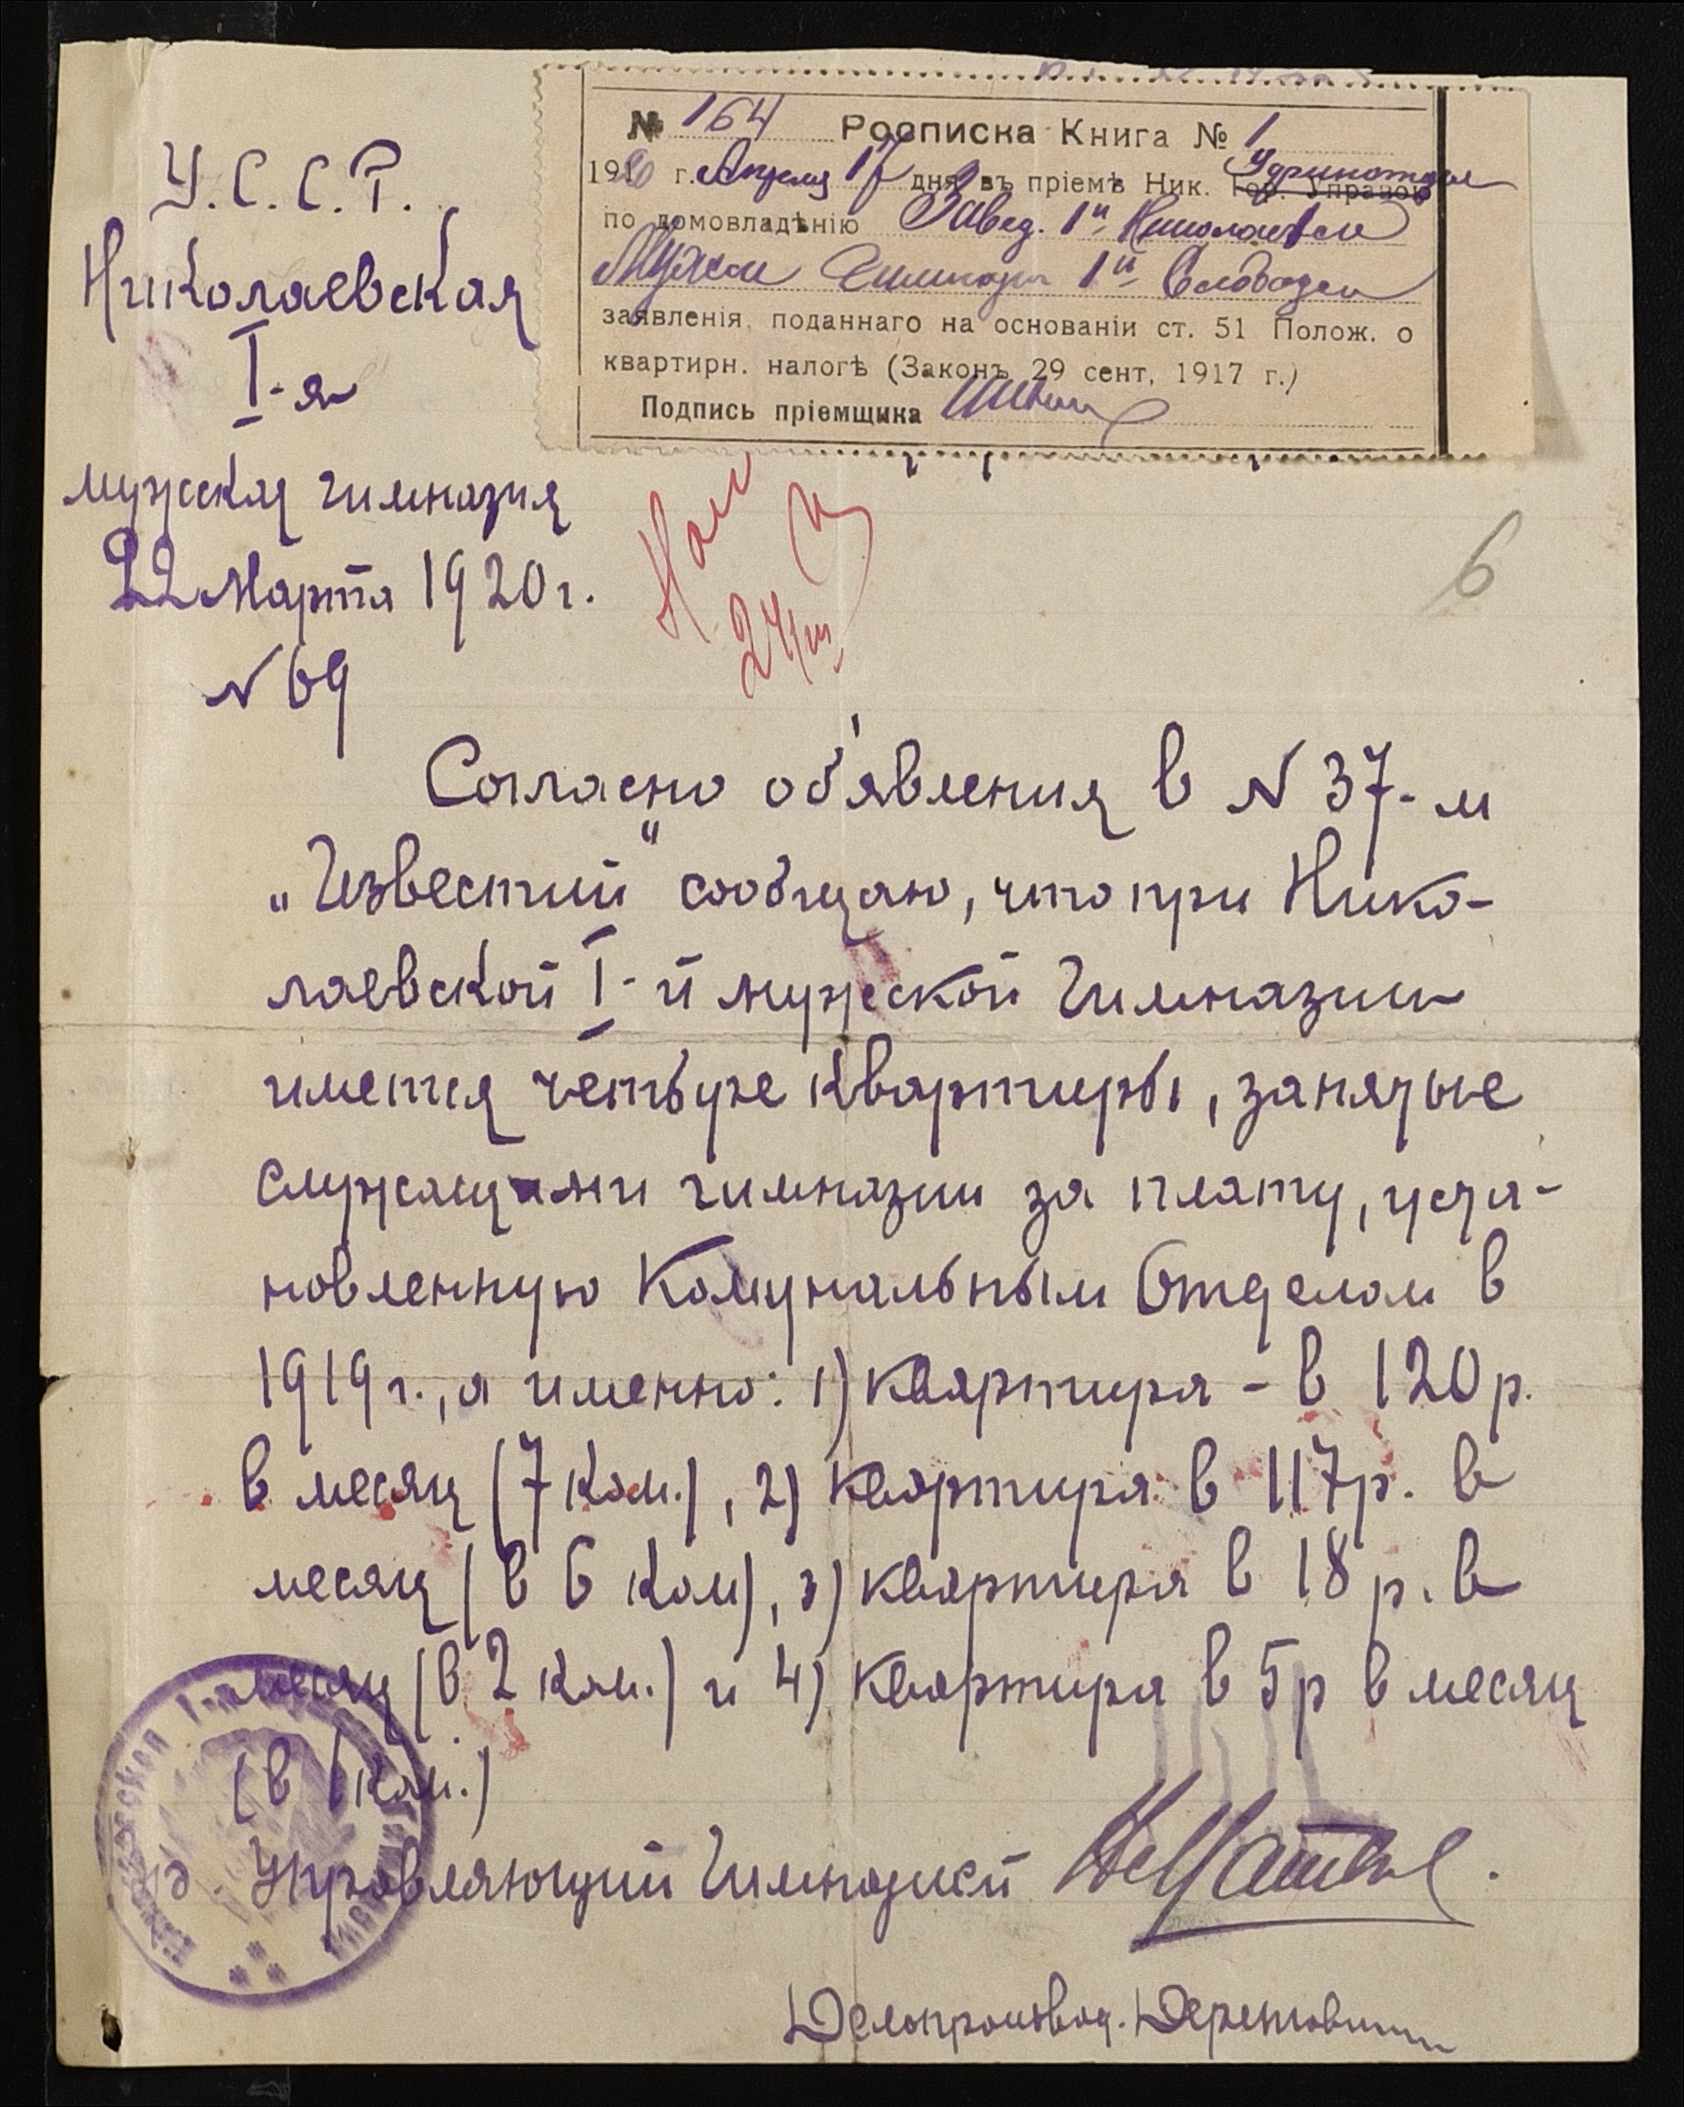 У.С.С.Р.
Николаевская
I-я
мужская гимназия
22 Марта 1920 г.
N 69
№ 164 Росписка Книга № 1
1920 г. Апреля 17 дня въ пріемѣ Ник. Гор. Управою
по домовладѣнію Завед. 1й Николаевск
Мужск Гимнази 1й Слободск
заявленія, поданнаго на основаніи ст. 51 Полож. о
квартирн. налогѣ (Законъ 29 сент, 1917 г.)
Подпись пріемщика
24/III
6
Согласно об'явления в N 37-м
„Известий" сообщаю, что при Нико-
лаевской I-й мужской Гимназии
имется четыре квартиры, занятые
служащими гимназии за плату, уста-
новленную Комунальным Отделом в
1919 г., а именно: 1) квартира - в 120 р.
в месяц (7 ком.), 2) квартира в 117 р. в
месяц (в 6 ком), 3) квартира в 18 р. в
месяц (в 2 ком.) и 4) квартира в 5 р в месяц
(в 1 ком.)
Управляющий Гимназией
Делопроизвод.